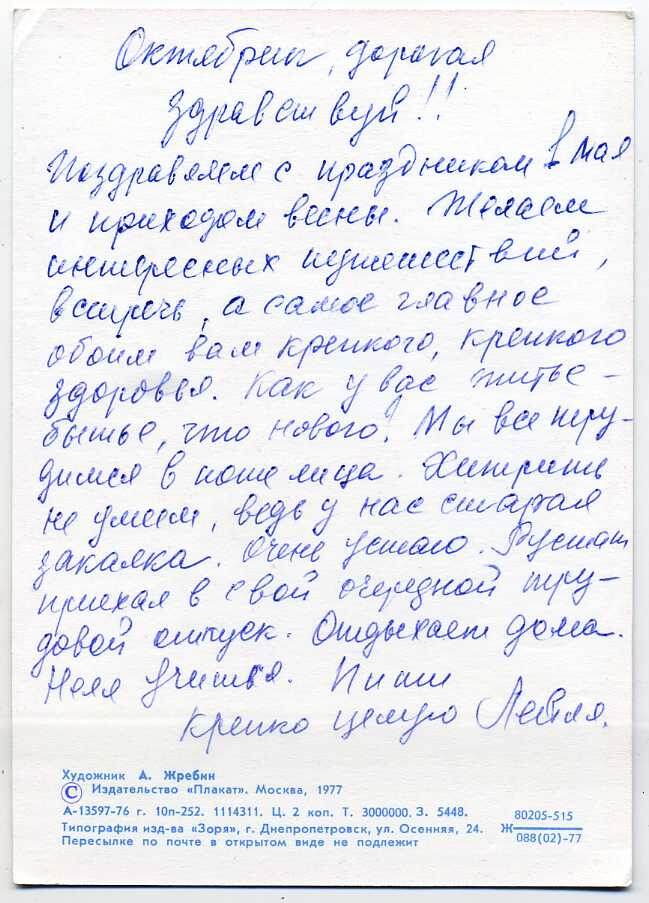 Октябрин, дорогая
Здравствуй!!
Поздравляем с праздником 1 мая
и приходом весны. Желаем
интересных путешествий,
встречь, а самое главное
обоим вам крепкого, крепкого
здоровья. Как у вас житье-
бытье, что нового? Мы все тру-
димся в поте лица. Хитрить
не умеем, ведь у нас старая
закалка. Очень устаю. Рустам
приехал в свой очередной тру-
довой отпуск. Отдыхает дома.
Неля учится. Пиши
Крепко целую
Художник А. Жребин
© Издательство «Плакат». Москва, 1977
А-13597-76 г. 10п-252. 1114311. Ц. 2 коп. Т. 3000000. З. 5448.
Типография изд-ва «Зоря», г. Днепропетровск, ул. Осенняя, 24.
Пересылке по почте в открытом виде не подлежит
80205-515
Ж
088(02)-77